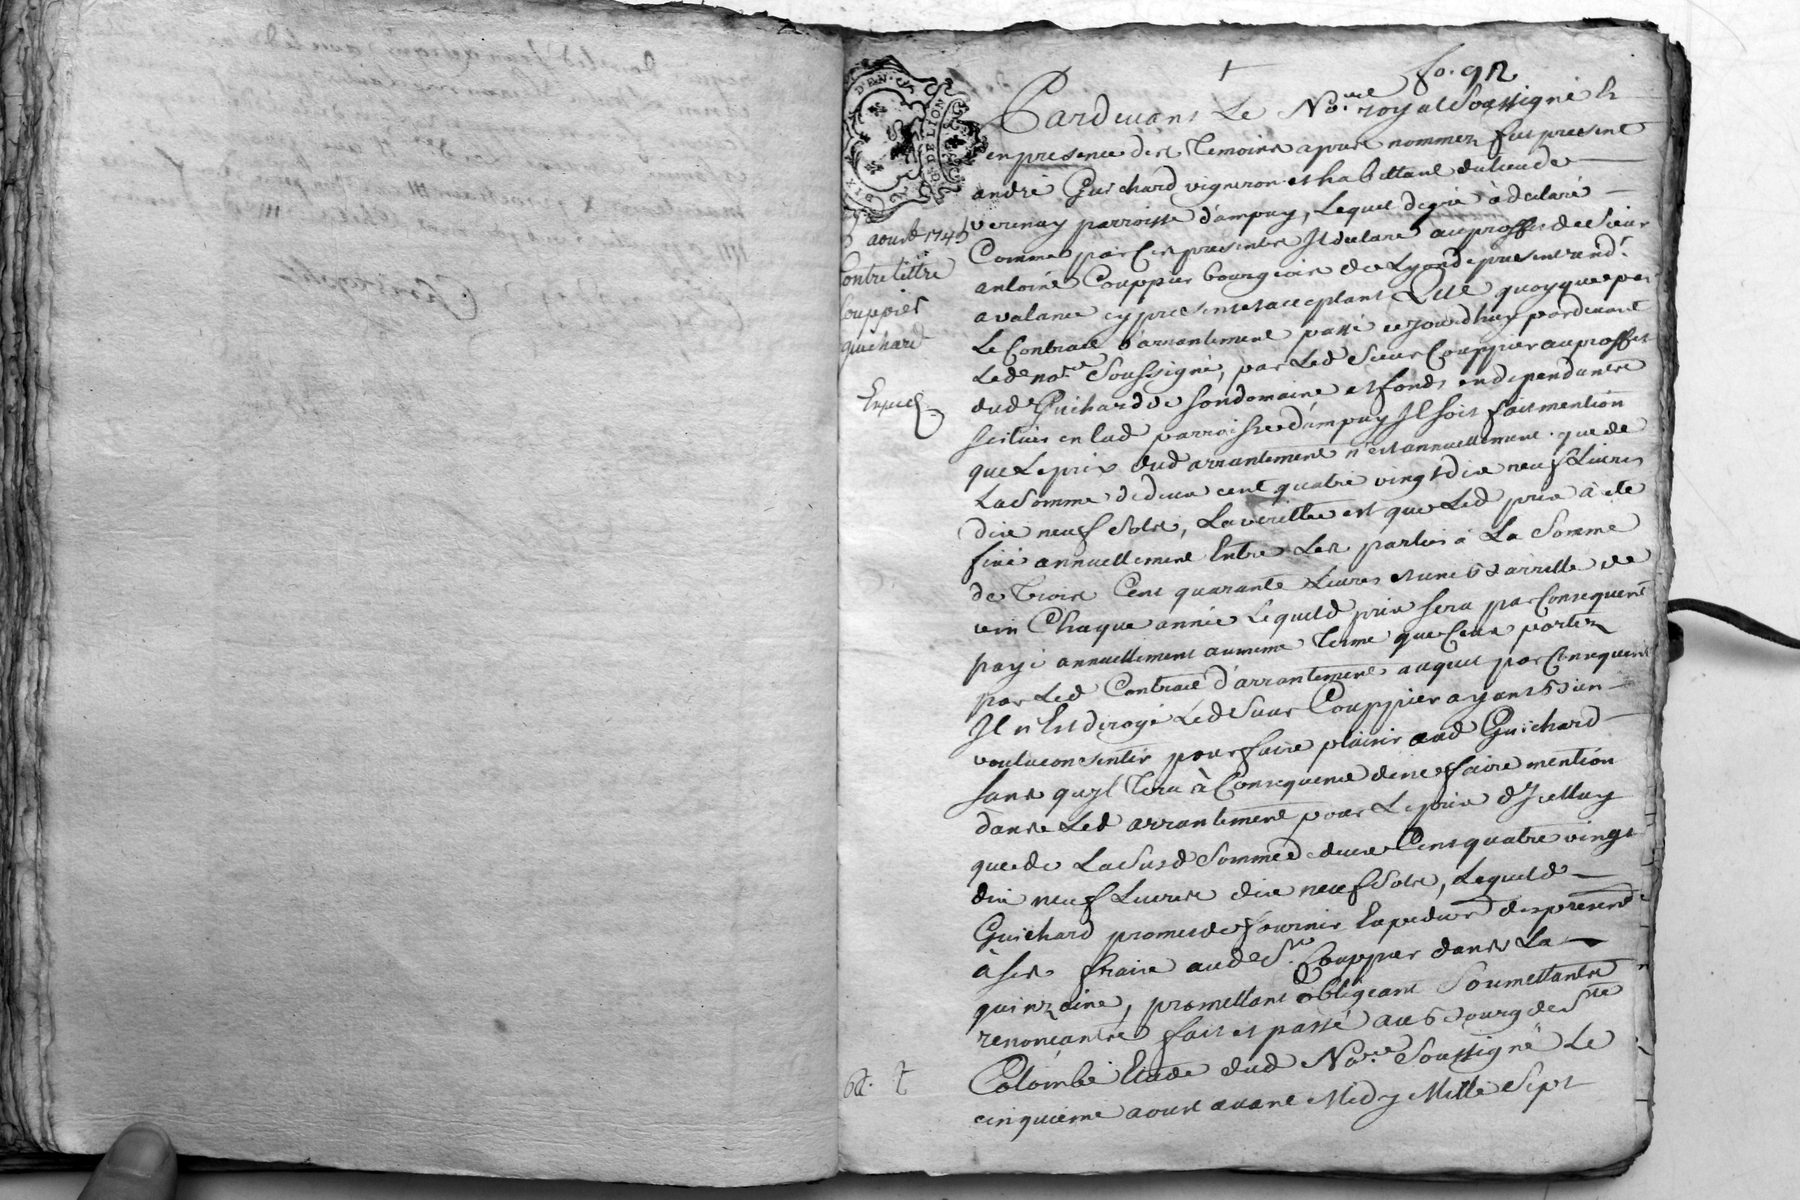 fo. 92
Pardevant Le No.re royal Soussigné &
en presence des temoins apres nommez fut present
andré Guichard vigneron et habittant du lieu de
verenay parroisse d'ampuy, Lequel de gré à declaré
Comme par Ces presentes Il declare au proffit de Sieur
antoine Couppier bourgeois de Lyon de present aud.
avalanca cy present et acceptant, Que quoyque par
Le Contract d'arrantement passé ce jourdhuy pardevant
Led. no.re Soussigné, par Led Sieur Couppier au proffit
dud Guichard de son domaine et fonds en dependants
scitués en lad parroisse d'ampuy Il soit fait mention
que Le prix dud arrantement n'est annuellement que de
La Somme de deux cent quatre vingt dix neuf Livres
dix neuf Sols, La veritté est que Led prix à eté
fixé annuellement Entre Les parties à La Somme
de Trois Cent quarante Livres et une barrille de
vin Chaque année Lequel d prix sera par Consequent
payé annuellement au meme terme que Ceux portez
par Led Contract d'arrantement auquel par Consequent
Il n'Est derogé Led Sieur Couppier ayant bien
voulu consentir pour faire plaisir aud Guichard
sans qu'jl tire à Consequence de ne faire mention
dans Led arrantement pour Le prix d'Jcelluy
que de La Susd Somme de deux Cent quatre vingt
dix neuf Livres dix neuf Sols, Lequel d
Guichard promet de fournir Expedion des presentes
à ses fraix aud S.r Couppier dans La
quinzaine, promettant obligeant Soumettants
renonçants fait et passé au bourg de Ste
Colombe Etude dud No.re Soussigné Le
cinquieme aoust avant Midy Mille Sept
5 aoust 1745
Contrelettre
Couppier
guichard
Exped